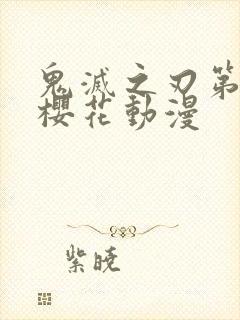 鬼滅之刃第
櫻花動漫
紫曉